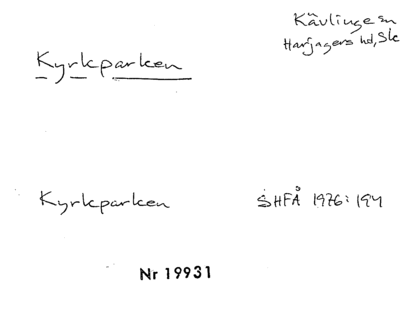 Kävlinge sn
Harjagers hd, Sk
Kyrkparken
Kyrkparken SHFÅ 1976: 194
Nr 19931